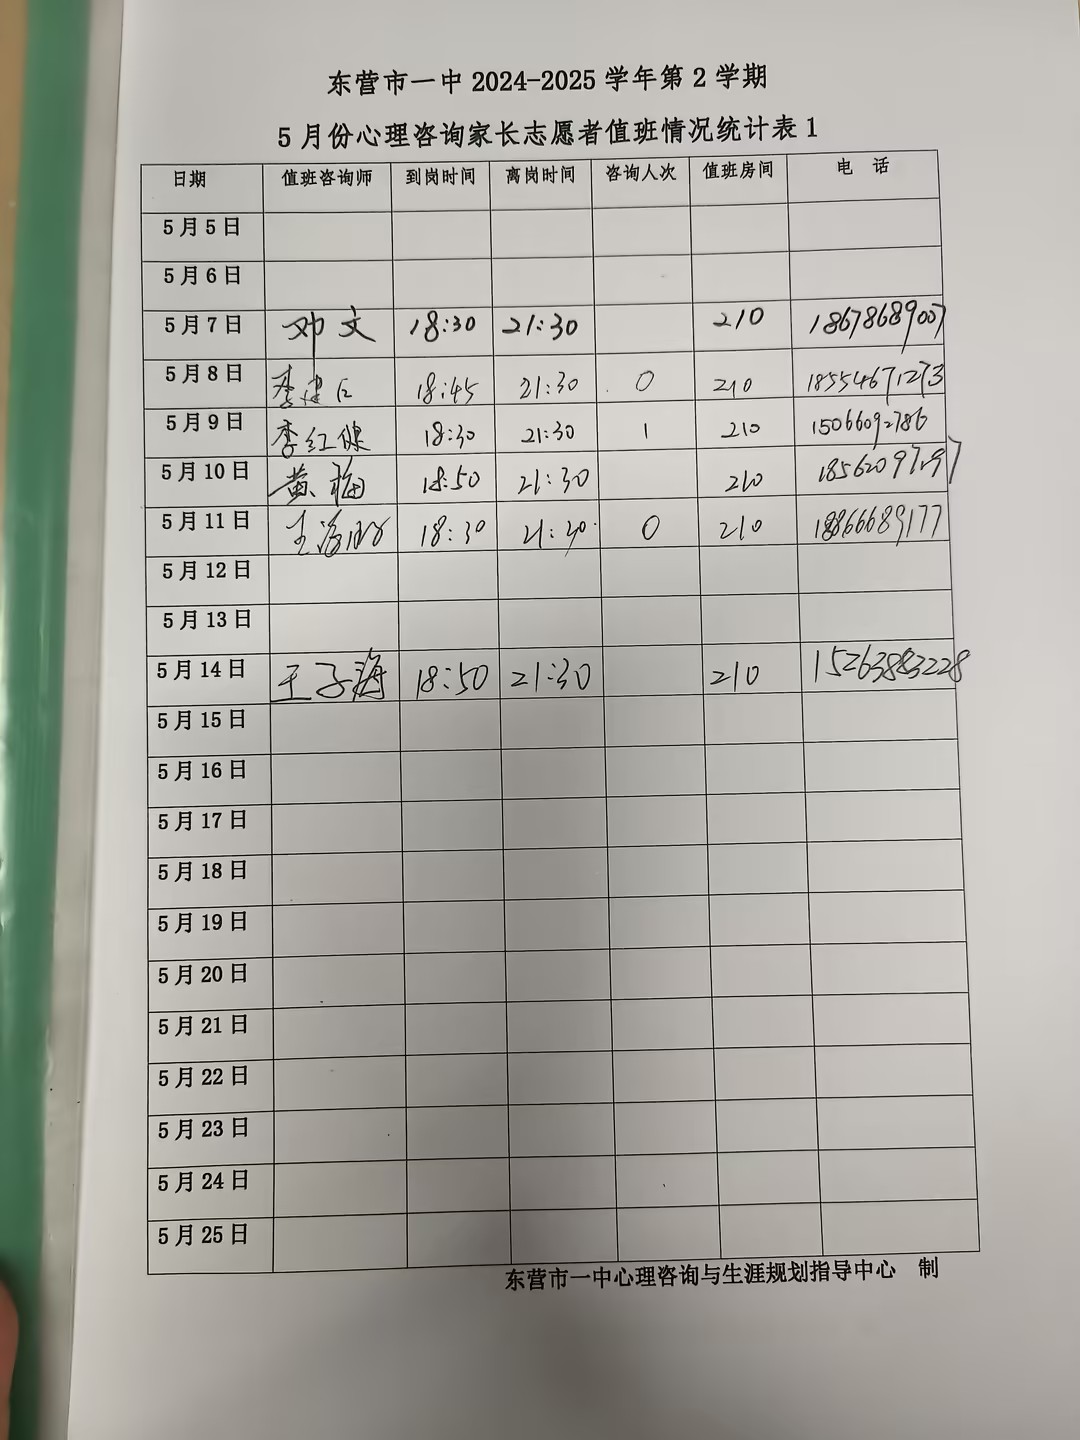 东营市一中 2024-2025 学年第 2 学期
5 月份心理咨询家长志愿者值班情况统计表 1
日期 值班咨询师 到岗时间 离岗时间 咨询人次 值班房间 电 话
5 月 5 日
5 月 6 日
5 月 7 日 邓文 18:30 21:30 210 18678689007
5 月 8 日 李建仁 18:45 21:30 0 210 18554671273
5 月 9 日 李红健 18:30 21:30 1 210 15066092786
5 月 10 日 黄梅 18:50 21:30 210 18562097297
5 月 11 日 18:30 21:30 0 210 18866689177
5 月 12 日
5 月 13 日
5 月 14 日 王子海 18:50 21:30 210 15263883228
5 月 15 日
5 月 16 日
5 月 17 日
5 月 18 日
5 月 19 日
5 月 20 日
5 月 21 日
5 月 22 日
5 月 23 日
5 月 24 日
5 月 25 日
东营市一中心理咨询与生涯规划指导中心 制